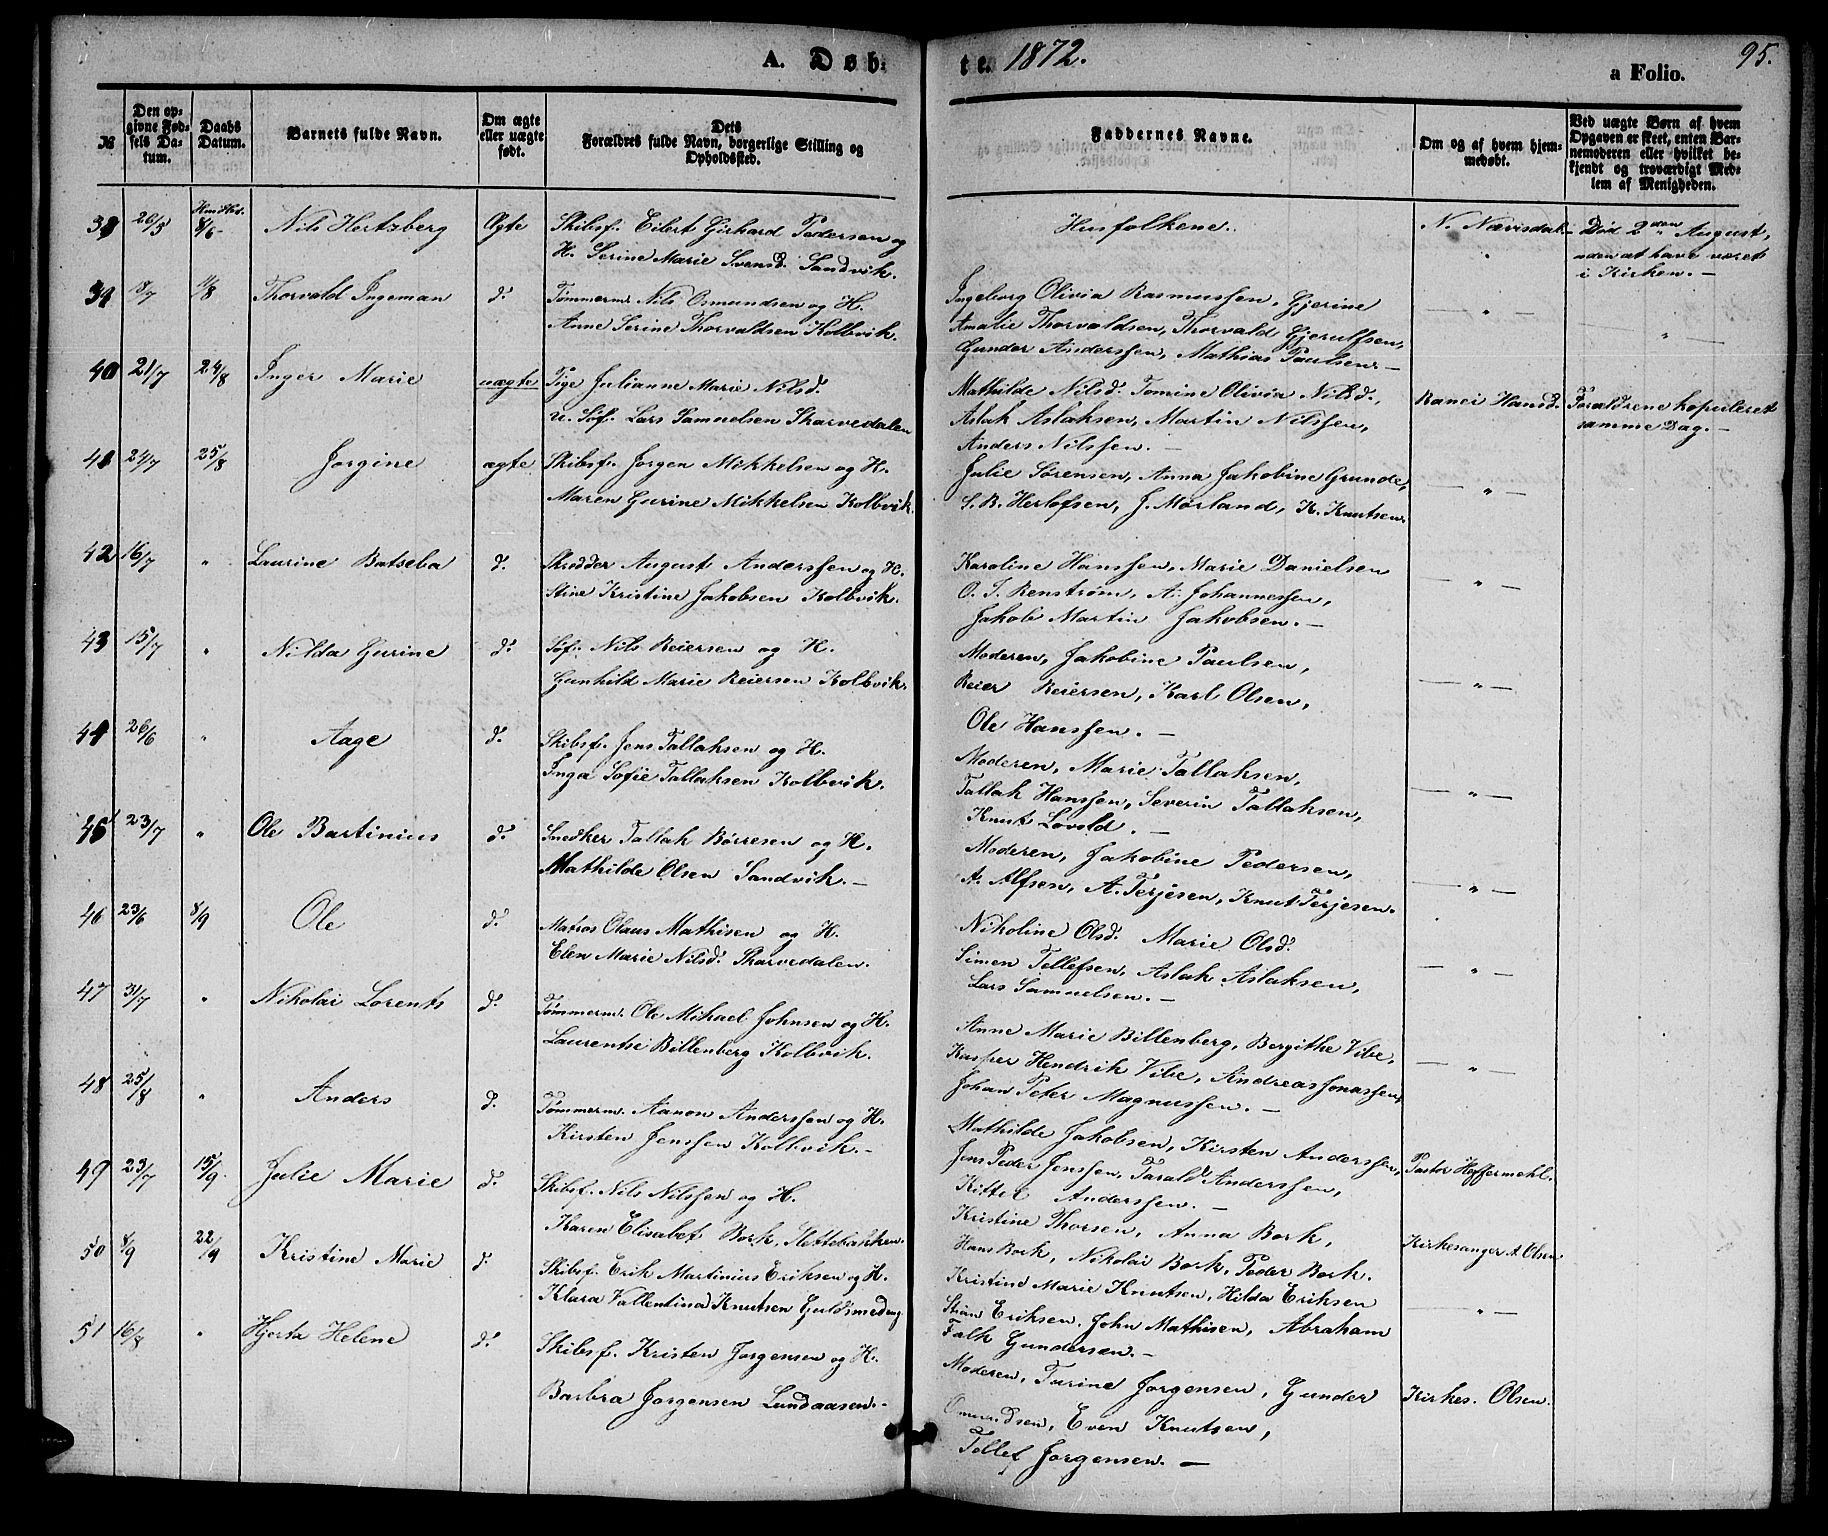 A. Døb
te. 1872.
a Folio.
95.
№
Den opgivne Fødsels Datum.
Daabs Datum.
Barnets fulde Navn.
Om ægte eller uægte født.
Dets Forældres fulde Navn, borgerlige Stilling og Opholdssted.
Faddernes Navne.
Om og af hvem hjemmedøbt.
Ved uægte Børn af hvem Opgaven er skeet, enten Barnemoderen eller hvilket bekjendt og troværdigt Medlem af Menigheden.
38 26/5 Hmdbt. 8/6 Nils Hertzberg Ægte Skibsf. Eilert Gerhard Pedersen og
H. Serine Marie Svensd. Sandvik.
Husfolkene.
Død 2den August,
uden at have været
i Kirken. —
39 18/7 11/8 Thorvald Ingeman d. Tømmerm. Nils Osmundsen og H.
Anne Serine Thorvaldsen Kolbvik.
Ingeborg Olivia Rasmussen, Gjerine
Amalie Thorvaldsen, Thorvald Gjerulfsen,
Gunder Anderssen, Mathias Paulsen. —
— " —
"
40 21/7 24/8 Inger Marie uægte Pige Julianne Marie Nilsd.
u. Søf. Lars Samuelsen Skarvedalen
Mathilde Nilsd. Tomine Olivia Nilsd.,
Aslak Aslaksen, Martin Nilssen,
Anders Nilssen. —
Hansd.
Forældrene kopuleret
samme Dag. —
41 24/7 25/8 Jørgine ægte Skibsf. Jørgen Mikkelsen og H.
Maren Gurine Mikkelsen Kolbvik.
Julie Sørensen, Anna Jakobine Grunde,
S. B. Herlofsen, J. Mørland, K. Knutsen.
— " —
42 16/7 " Laurine Batseba d. Skrædder August Anderssen og H.
Stine Kristine Jakobsen Kolbvik.
Karoline Hanssen, Marie Danielsen
O. T. Renstrøm, A. Johannessen,
Jakob Martin Jakobsen. —
— " —
43 15/7 " Nilda Gurine d. Søf. Nils Reiersen og H.
Gunhild Marie Reiersen Kolbvik.
Moderen, Jakobine Paulsen,
Reier Reiersen, Karl Olsen,
Ole Hanssen. —
— " —
44 26/6 " Aage d. Skibsf. Jens Tallaksen og H.
Inga Sofie Tallaksen Kolbvik.
Moderen, Marie Tallaksen,
Tallak Hanssen, Severin Tallaksen,
Knut Løvold. —
— " —
45 23/7 " Ole Bartinius d. Snedker Tallak Børresen og H.
Mathilde Olsen Sandvik. —
Moderen, Jakobine Pedersen,
A. Alfsen, A. Terjesen, Knut Terjesen.
— " —
46 23/6 8/9 Ole d. Matros Olaus Mathisen og H.
Elen Marie Nilsd. Skarvedalen.
Nikoline Olsd. Marie Olsd.
Simen Tellefsen, Aslak Aslaksen,
Lars Samuelsen. —
— " —
47 31/7 " Nikolai Lorents d. Tømmerm. Ole Mikael Johnsen og H.
Laurentse Billenberg Kolbvik.
Anne Marie Billenberg, Bergithe Vibe,
Kasper Hendrik Vibe, Andreas Jonassen,
Johan Peter Magnussen. —
— " —
48 25/8 " Anders d. Tømmerm. Aanon Anderssen og H.
Kirsten Jenssen Kolbvik. —
Mathilde Jakobsen, Kirsten Anderssen,
Jens Peder Jenssen, Tarald Anderssen,
Kittel Anderssen. —
Pastor Hoffermehl.
49 23/7 15/9 Julie Marie d. Skibsf. Nils Nilssen og H.
Karen Elisabet Bork, Slettebakken.
Kristine Thorsen, Anna Bork,
Hans Bork, Nikolai Bork, Peder Bork.
Kirkesanger A. Olsen
50 8/9 22/9 Kristine Marie d. Skibsf. Erik Martinius Eriksen og H.
Klara Vallentina Knutsen Guldsmedeng
Kristine Marie Knutsen, Hilda Eriksen
Stian Eriksen, John Mathisen, Abraham
Falk Gundersen. —
— " —
51 16/8 " Hjerta Helene d. Skibsf. Kristen Jørgensen og H.
Barbra Jørgensen Lundaasen. —
Moderen, Turine Jørgensen, Gunder
Omundsen, Even Knutsen,
Tellef Jørgensen. —
Kirkes. Olsen.